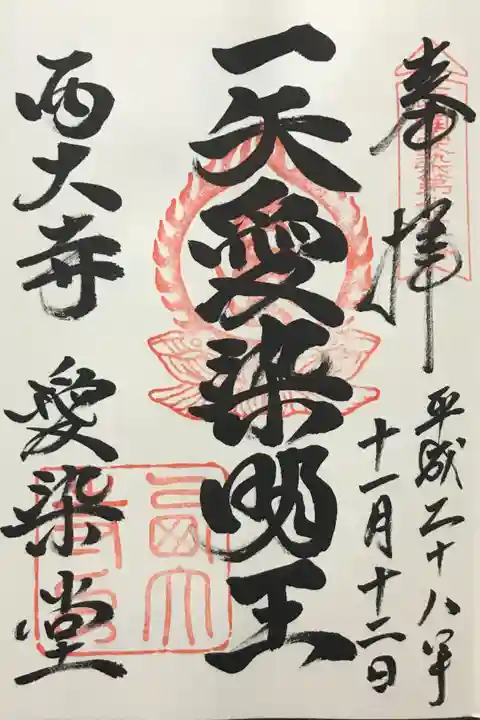 奉拝
平成二十八年
十一月十二日
一矢愛染明王
西大寺 愛染堂